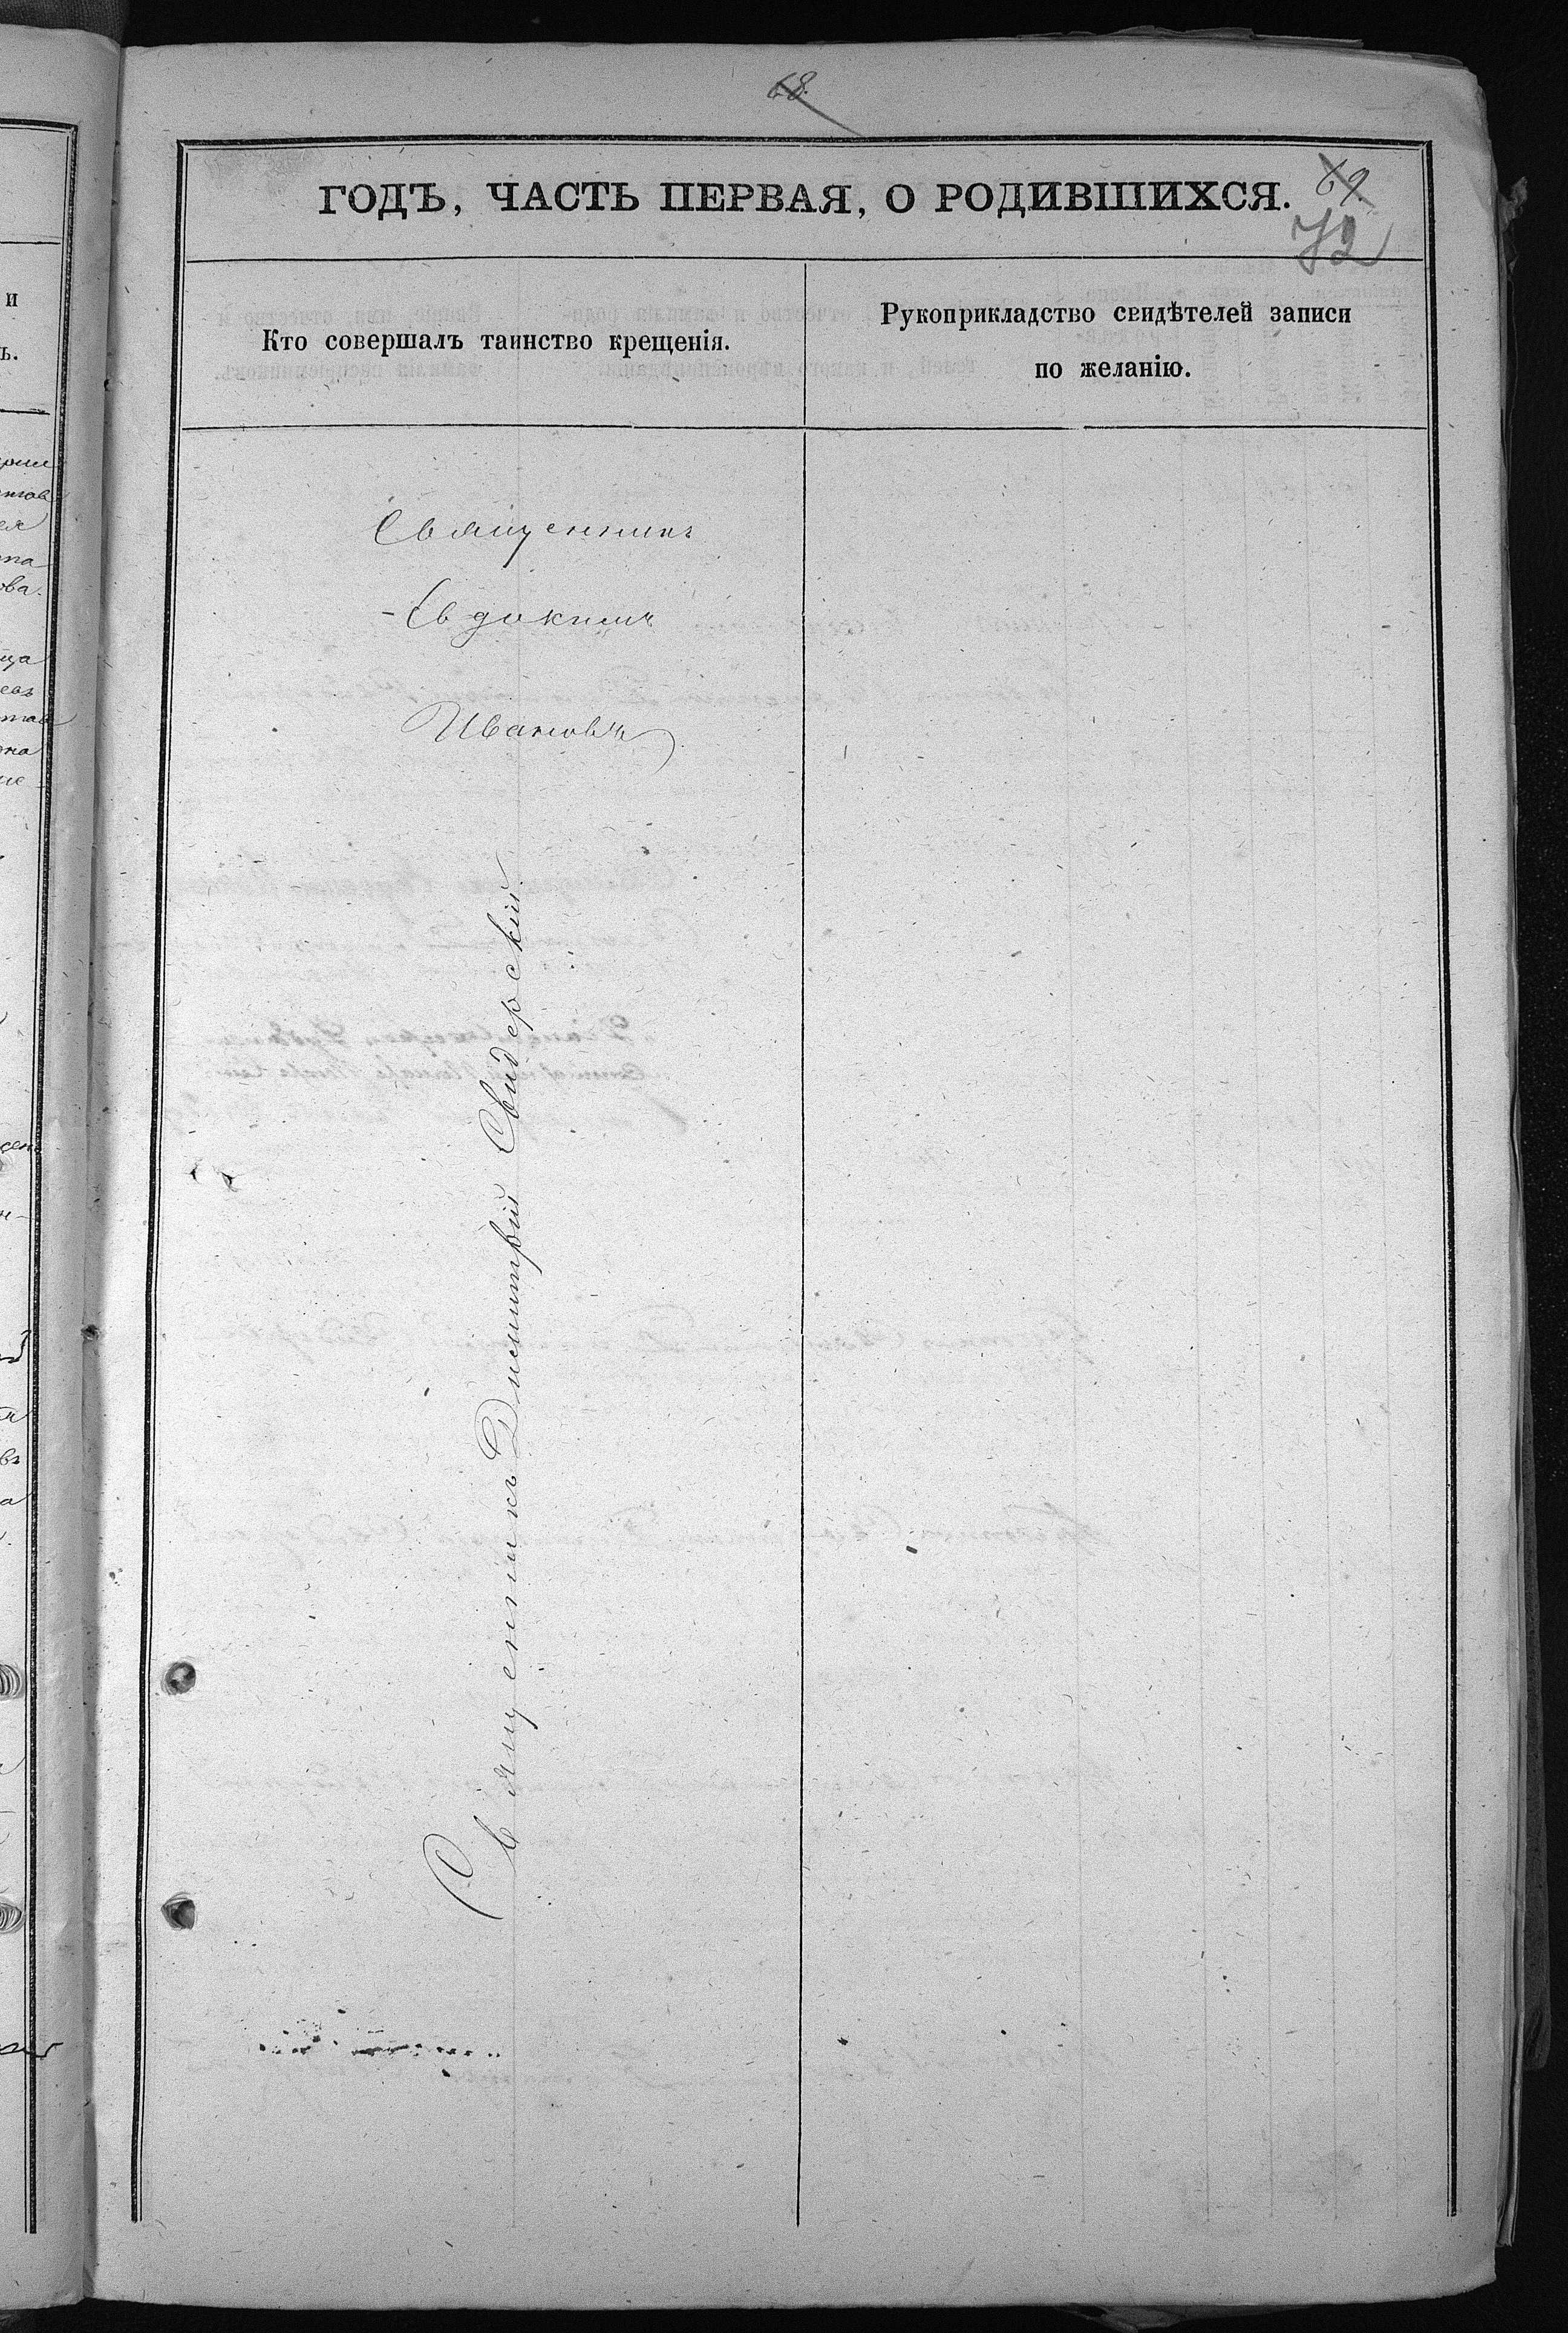 68.
ГОДЪ, ЧАСТЬ ПЕРВАЯ, О РОДИВШИХСЯ.
69.
72
Кто совершалъ таинство крещенія.
Рукоприкладство свидѣтелей записи
по желанію.
Священникъ
Евдокимъ
Ивановъ
Священникъ Димитрій Свидерскій